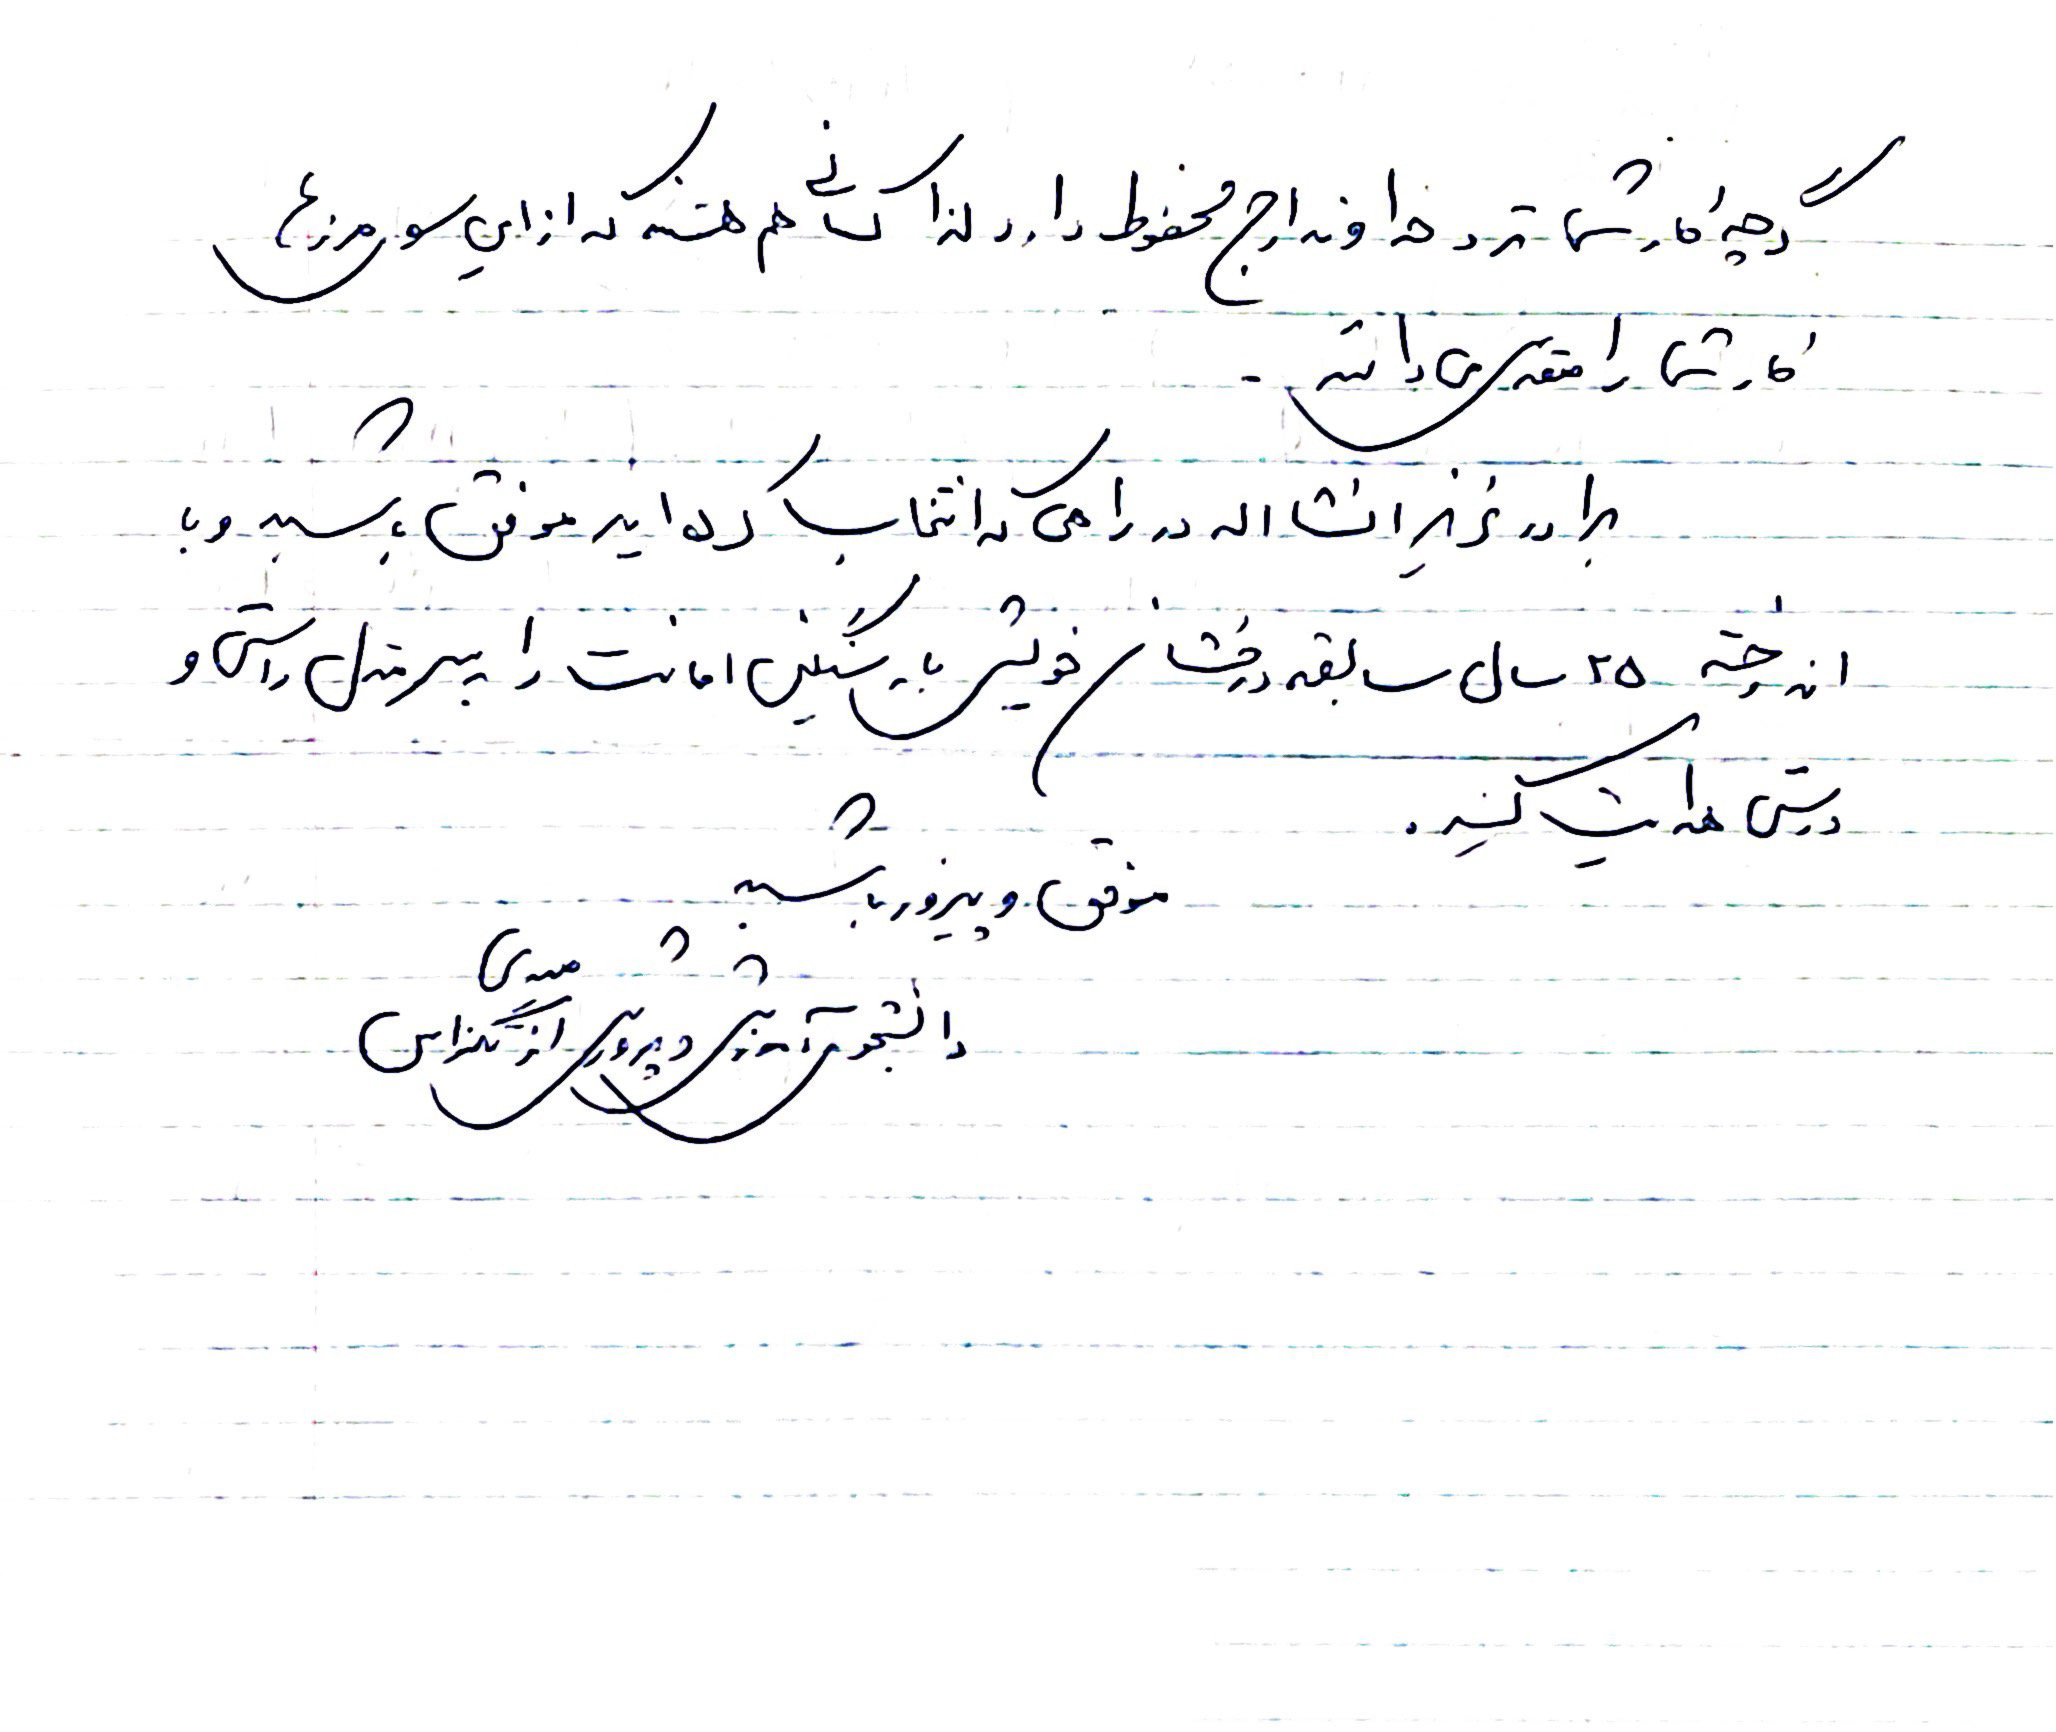 گرچه کار شما نزد خداوند ارج محفوظ دارد لذا کسانی هم هستند که از این سو مرزها
کار شما را مقدس می دانند -
برادر عزیز انشااله در راهی که انتخاب کرده اید موفق باشید و با
اندوخته ۲۵ سال سابقه درخشان خویش بار سنگین امانت را به سر منزل راستی و
درستی هدایت کنید.
موفق و پیروز باشید
صیدی
دانشجوی آموزش و پرورش از تگزاس